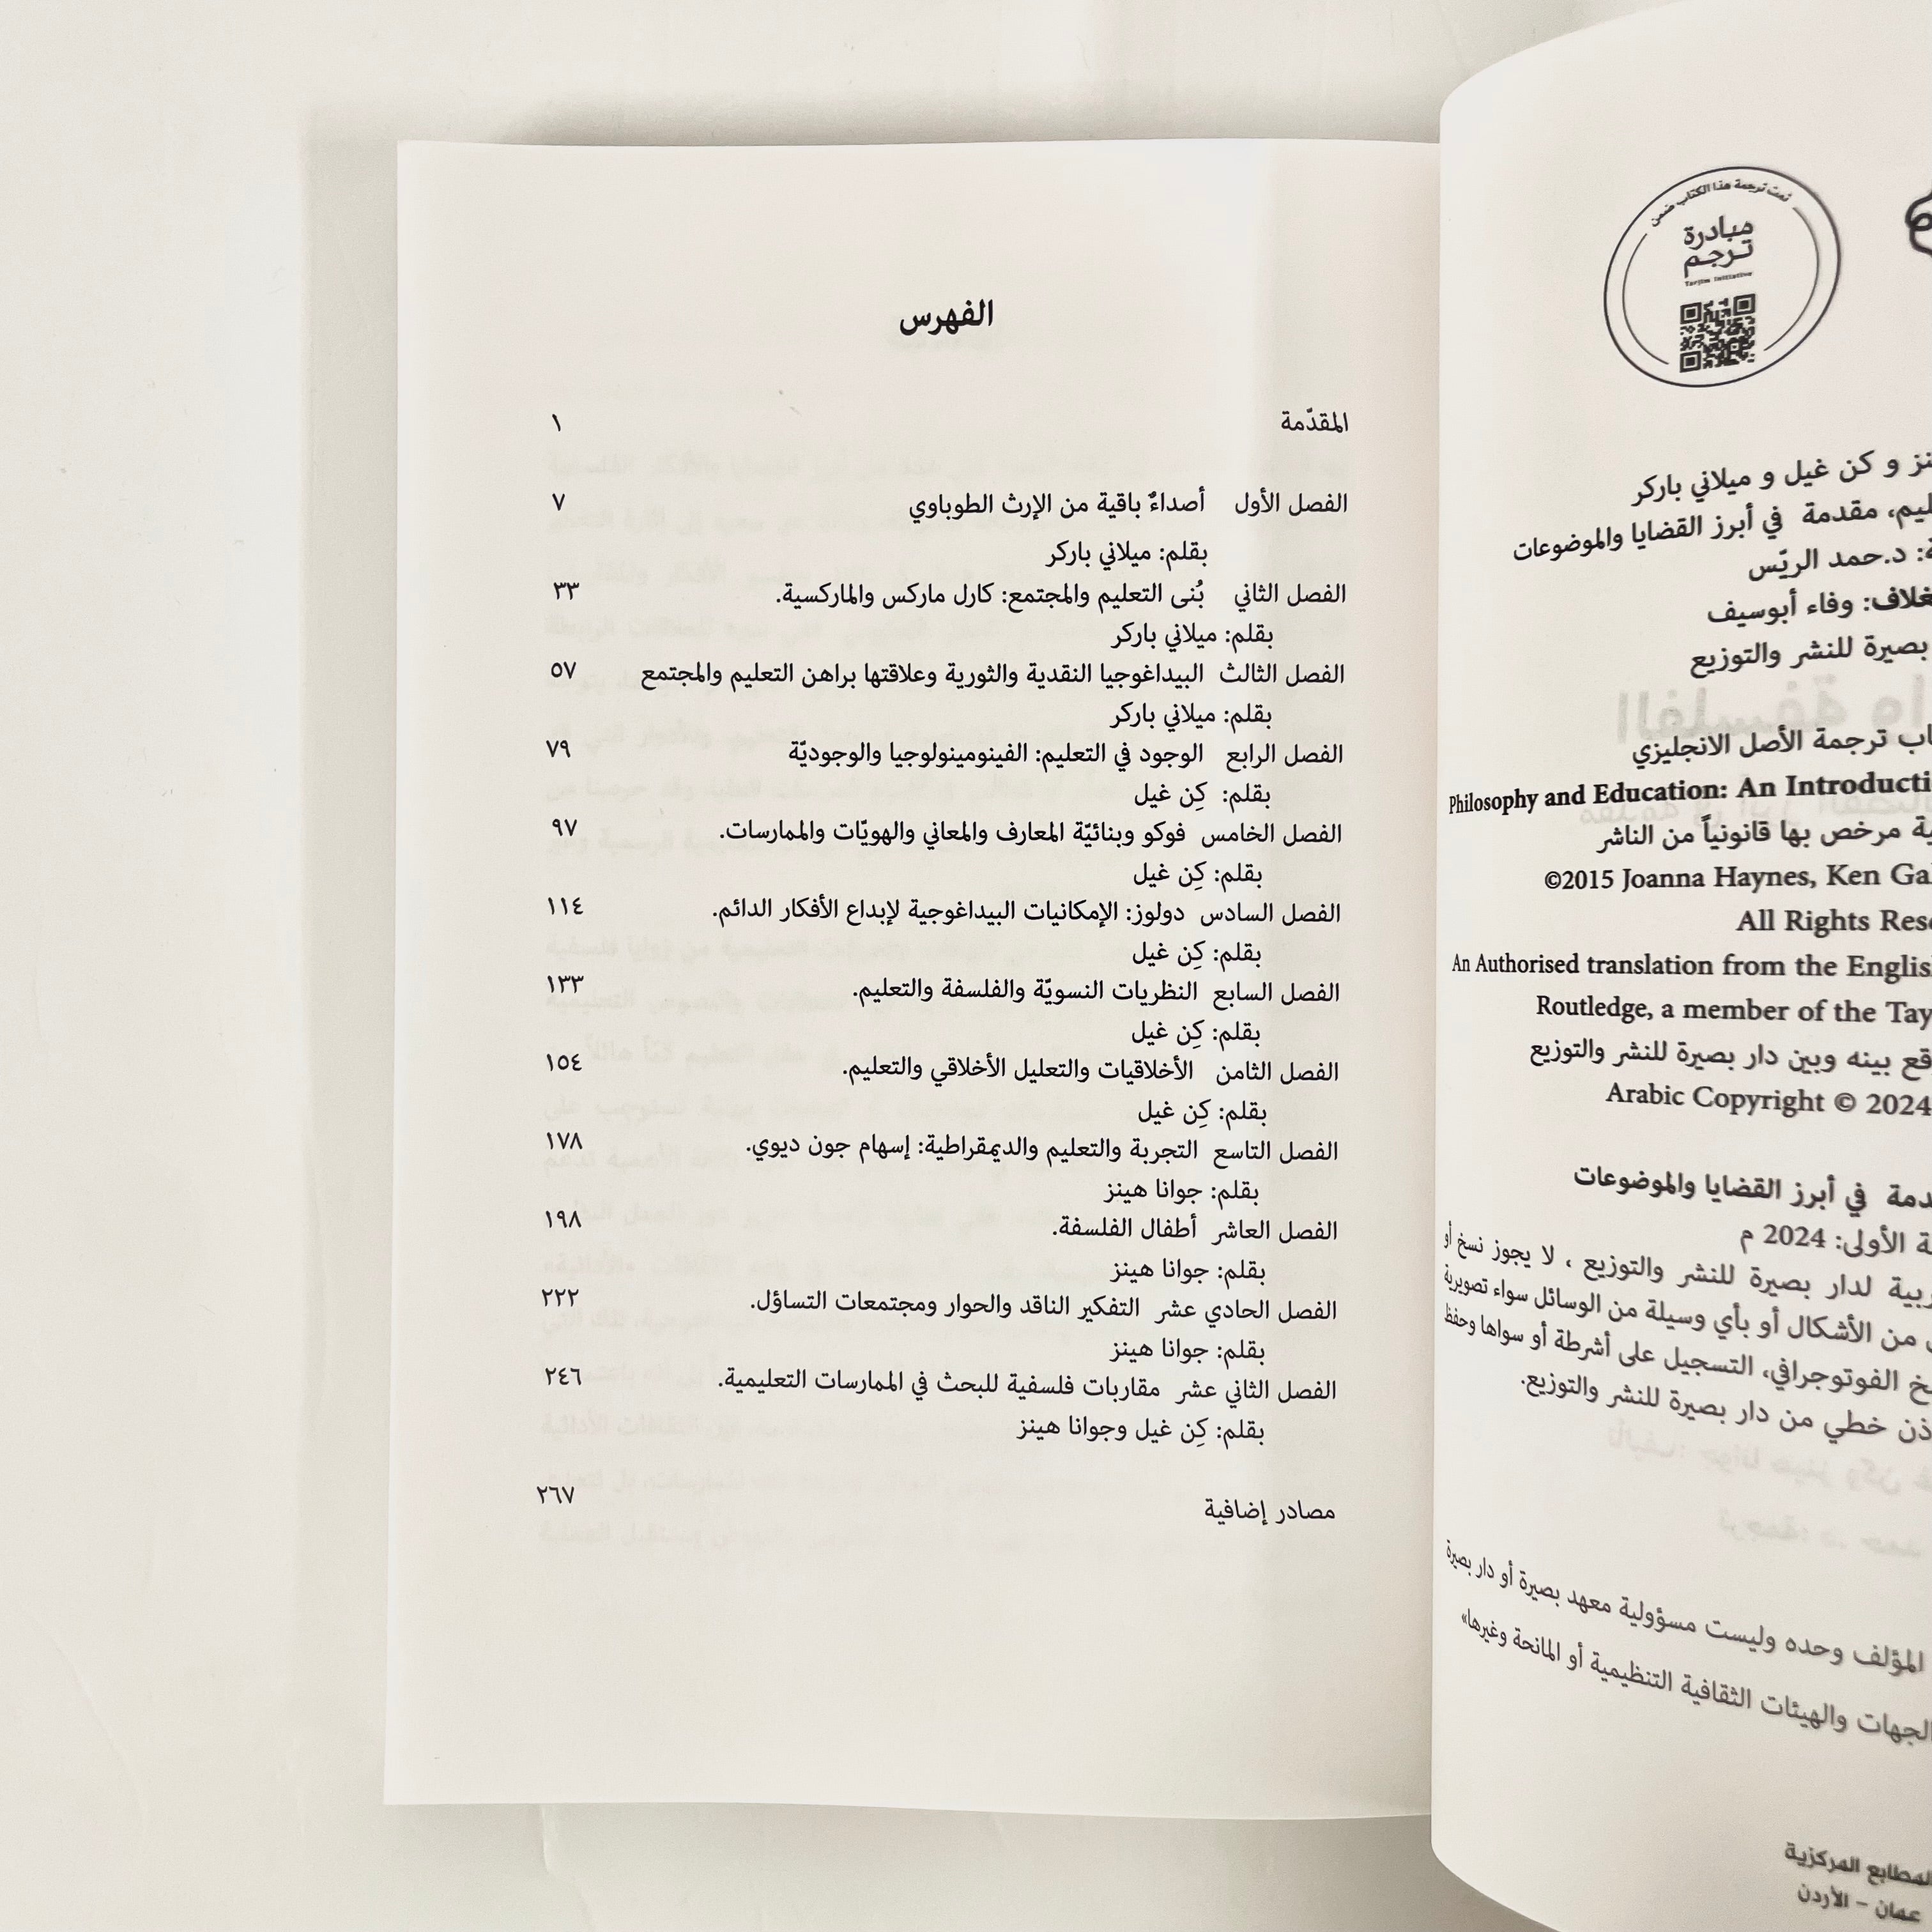 الفهرس
المقدّمة ١
الفصل الأول أصداءٌ باقية من الإرث الطوباوي ٧
بقلم: ميلاني باركر
الفصل الثاني بُنى التعليم والمجتمع: كارل ماركس والماركسية. ٣٣
بقلم: ميلاني باركر
الفصل الثالث البيداغوجيا النقدية والثورية وعلاقتها براهن التعليم والمجتمع ٥٧
بقلم: ميلاني باركر
الفصل الرابع الوجود في التعليم: الفينومينولوجيا والوجوديّة ٧٩
بقلم: كِن غيل
الفصل الخامس فوكو وبنائيّة المعارف والمعاني والهويّات والممارسات. ٩٧
بقلم: كِن غيل
الفصل السادس دولوز: الإمكانيات البيداغوجية لإبداع الأفكار الدائم. ١١٤
بقلم: كِن غيل
الفصل السابع النظريات النسويّة والفلسفة والتعليم. ١٣٣
بقلم: كِن غيل
الفصل الثامن الأخلاقيات والتعليل الأخلاقي والتعليم. ١٥٤
بقلم: كِن غيل
الفصل التاسع التجربة والتعليم والديمقراطية: إسهام جون ديوي. ١٧٨
بقلم: جوانا هينز
الفصل العاشر أطفال الفلسفة. ١٩٨
بقلم: جوانا هينز
الفصل الحادي عشر التفكير الناقد والحوار ومجتمعات التساؤل. ٢٢٢
بقلم: جوانا هينز
الفصل الثاني عشر مقاربات فلسفية للبحث في الممارسات التعليمية. ٢٤٦
بقلم: كِن غيل وجوانا هينز
مصادر إضافية ٢٦٧
تمت ترجمة هذا الكتاب ضمن
مبادرة
ترجم
Tarjim Initiative
و كن غيل و ميلاني باركر
مقدمة في أبرز القضايا والموضوعات
د.حمد الريّس
وفاء أبوسيف
بصيرة للنشر والتوزيع
ترجمة الأصل الانجليزي
Philosophy and Education: An
مرخص بها قانونياً من الناشر
©2015 Joanna Haynes, Ken
All Rights
An Authorised translation from the
Routledge, a member of the
بينه وبين دار بصيرة للنشر والتوزيع
Arabic Copyright © 2024
في أبرز القضايا والموضوعات
الأولى: 2024 م
لدار بصيرة للنشر والتوزيع ، لا يجوز نسخ أو
من الأشكال أو بأي وسيلة من الوسائل سواء تصويرية
الفوتوجرافي، التسجيل على أشرطة أو سواها وحفظ
خطي من دار بصيرة للنشر والتوزيع.
المؤلف وحده وليست مسؤولية معهد بصيرة أو دار بصيرة
الجهات والهيئات الثقافية التنظيمية أو المانحة وغيرها»
المطابع المركزية
عمان – الأردن